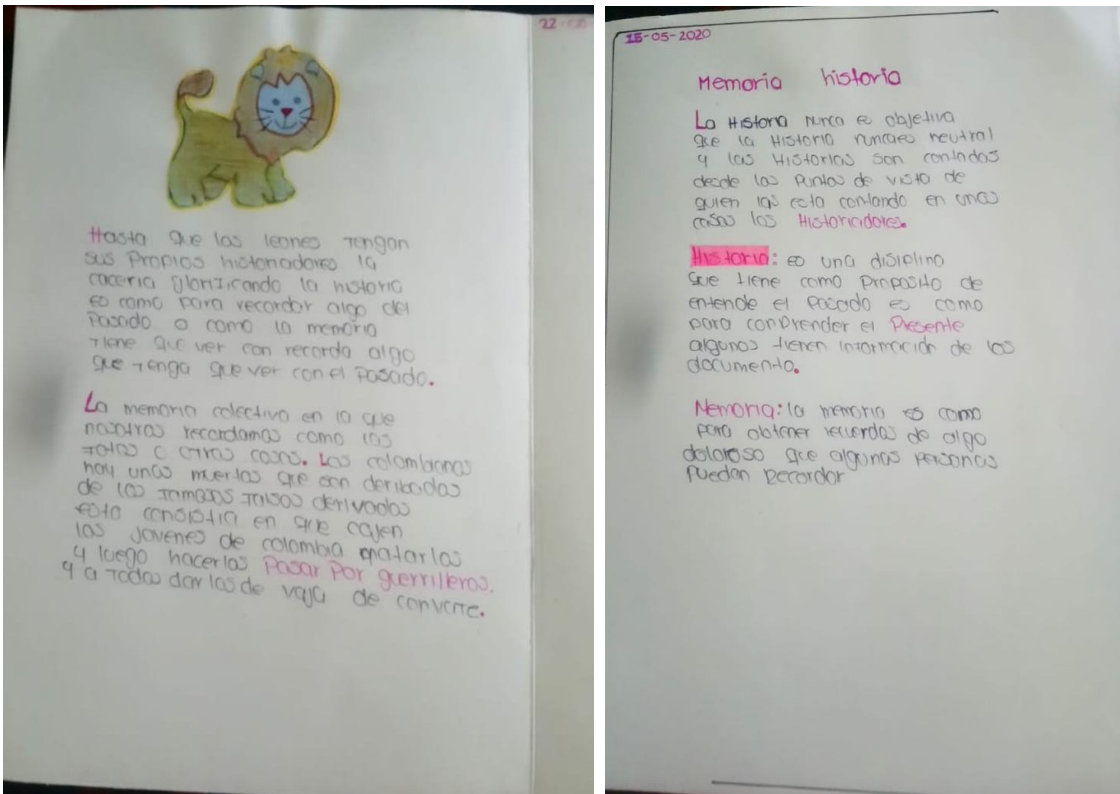 22-05
Hasta que los leones Tengan
sus Propios historiadores la
caceria glorificando la historia
es como para recordar algo del
Pasado o como la memoria
Tiene que ver con recorda algo
que Tenga que ver con el Pasado.
La memoria colectiva en la que
nosotros recordamos como las
o otras cosas. Los colombianos
hay unas muertas que son deribadas
de los falsos derivados
esto consistia en que cojen
los jovenes de colombia matarlos
y luego hacerlos Pasar Por guerrilleros.
y a Todos darlos de vaja de convate.
15-05-2020
Memoria historia
La Historia nunca es objetiva
que la Historia nuncaes neutral
y las Historias son contadas
desde los Puntos de visto de
quien las esta contando en unas
cosas los Historiadores.
Historia: es una disiplina
que tiene como Proposito de
entende el Pasado es como
para conprender el Presente
algunos tienen informacion de los
documento.
Memoria: la memoria es como
para obtener recuerdos de algo
doloroso que algunas Personas
Puedan Recordar